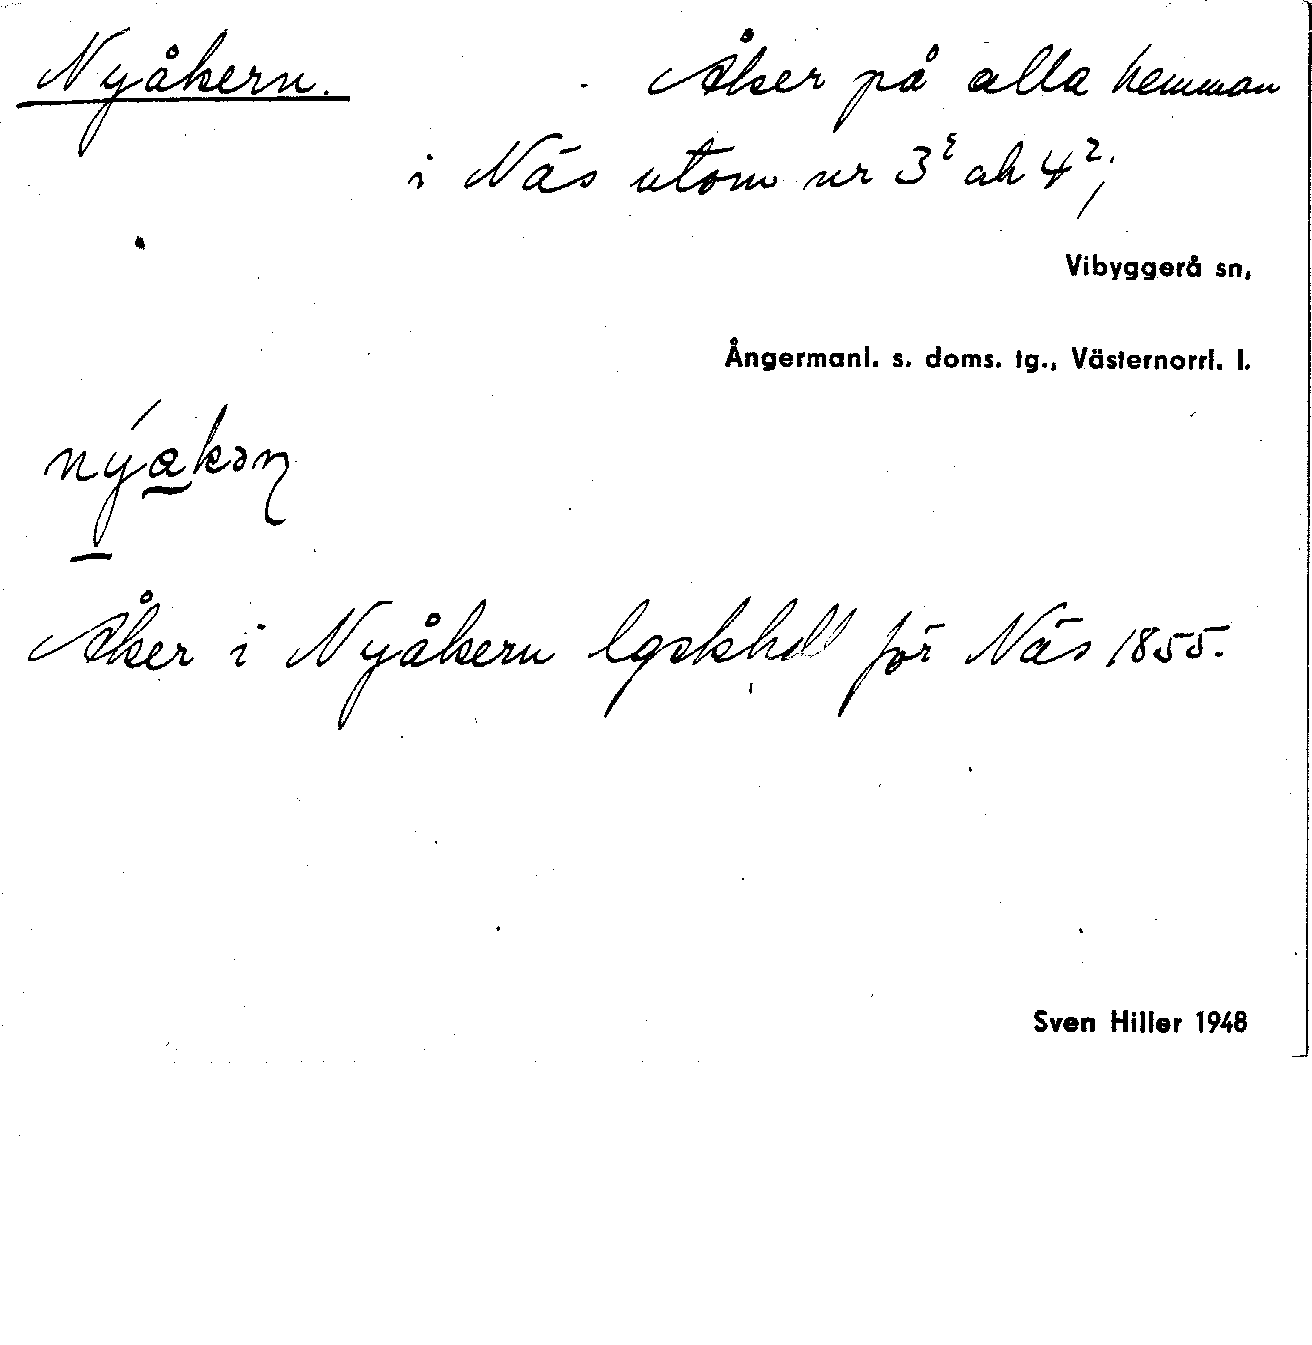 Nyåkern. Åker på alla hemman
i Näs utom nr 3² ah 4²;
Vibyggerå sn,
Ångermanl. s. doms. tg., Västernorrl. l.
nýakəɳ
Åker i Nyåkern lgskhdl för Näs 1855.
Sven Hiller 1948